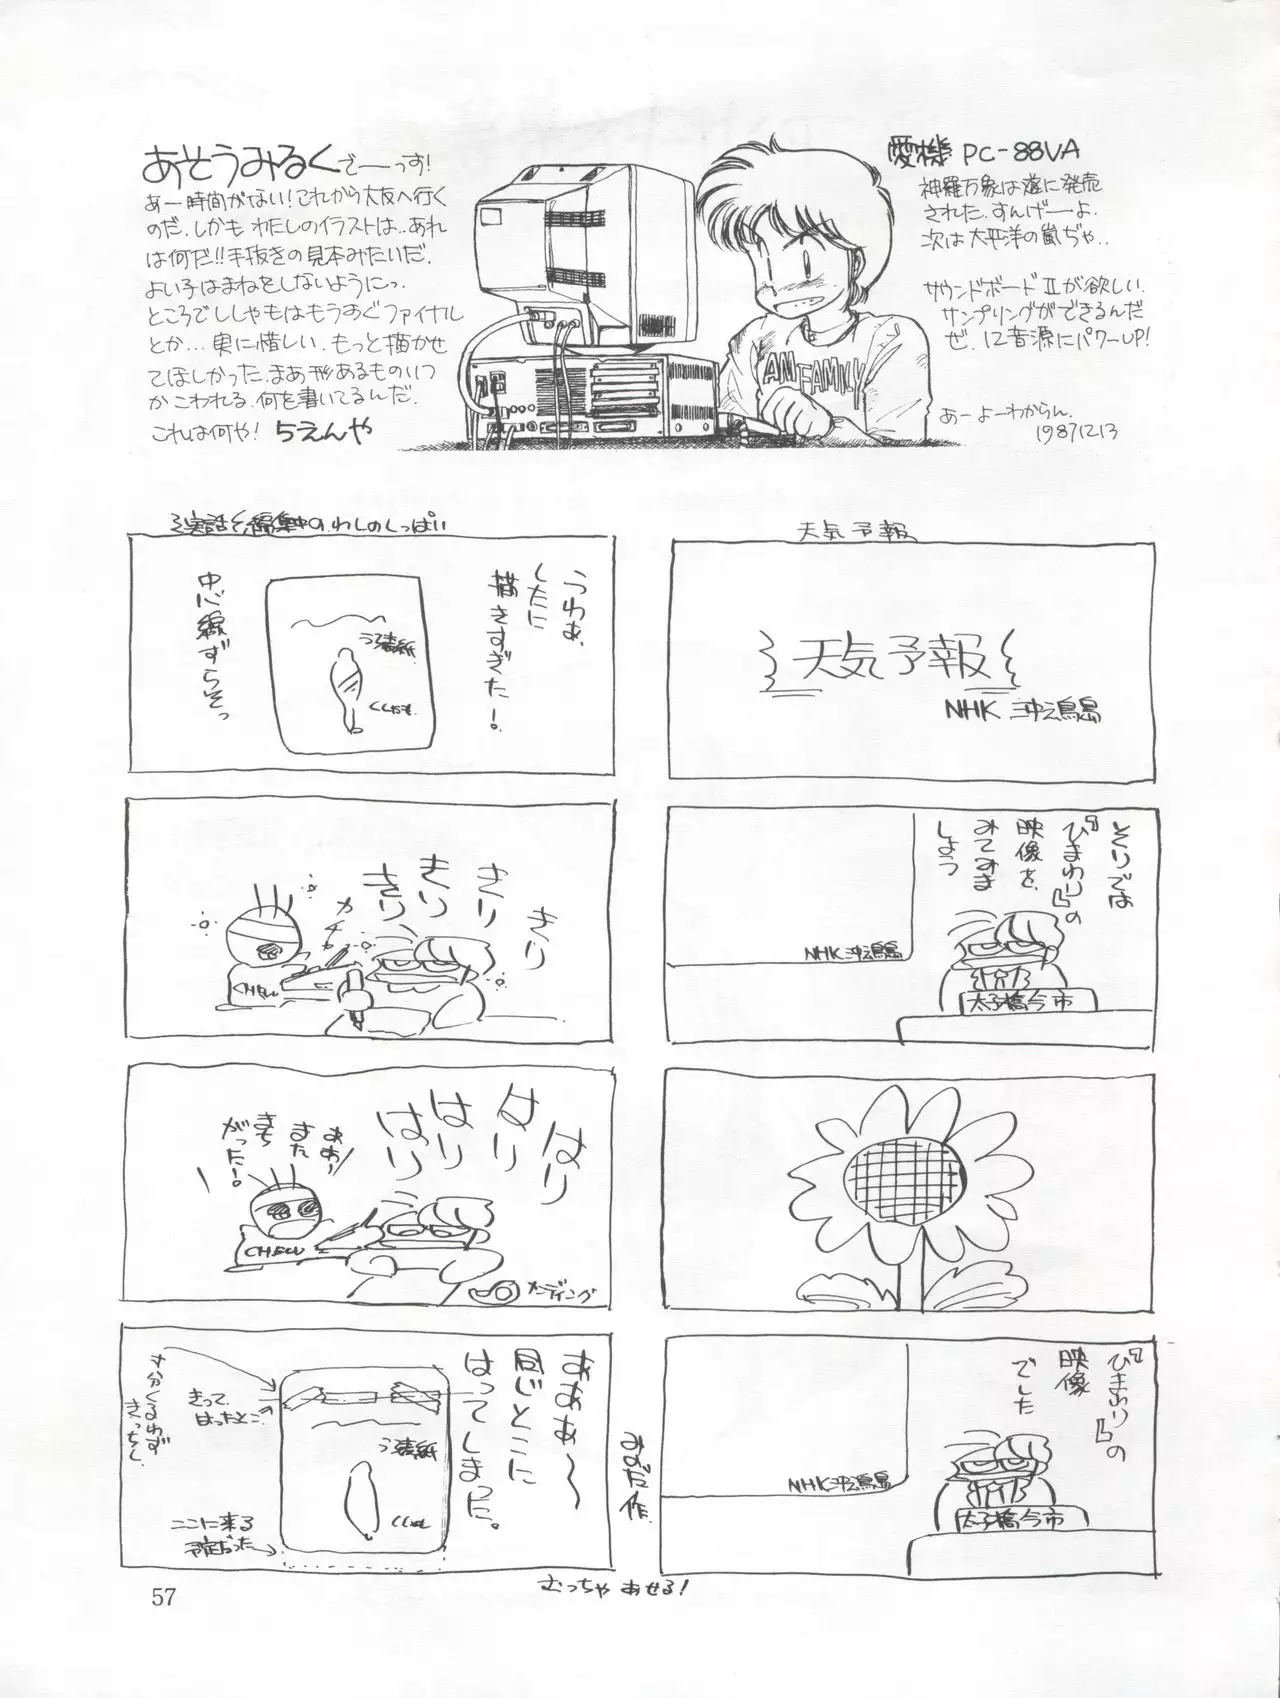 あそうみるくでーっす!
あー時間がない!これから大友へ行く
のだ.しかも わたしのイラストは…あれ
は何だ!!手抜きの見本みたいだ.
よい子はまねをしないようにっ.
ところでししゃもはもうすぐファイナル
とか…実に惜しい.もっと描かせ
てほしかった.まあ形あるものいつ
かこわれる.何を書いてるんだ.
これは何や! ちえんや
愛機 PC-88VA
神羅万象は遂に発売
された.すんげーよ.
次は太平洋の嵐ぢゃ..
サウンドボードⅡが欲しい.
サンプリングができるんだ
ぜ.12音源にパワーUP!
あーよーわからん.
19871213
AM FAMILY
実話 編集中の わしのしっぱい
うわぁ.
したに
描きすぎた!
うる表紙
ししゃも.
中心線ずらそっ
きり
きり
きり
きり
カチャ
CHECK
はり
はり
はり
はり
ああ〜
また
まち
がった!
CHECK
メンディング
あああ〜
同じとこに
はってしまった。
寸分くるわず
きっちし.
きって
はったとこ.
うる表紙
ししゃも
ここに来る
予定だった→
みずた作.
むっちゃ あせる!
天気予報
天気予報
NHK 沖之鳥島
そりでは
『ひまわり』の
映像を
みてみま
しょう
NHK沖之鳥島
太子橋今市
『ひまわり』の
映像
でした
NHK沖之鳥島
太子橋今市
57